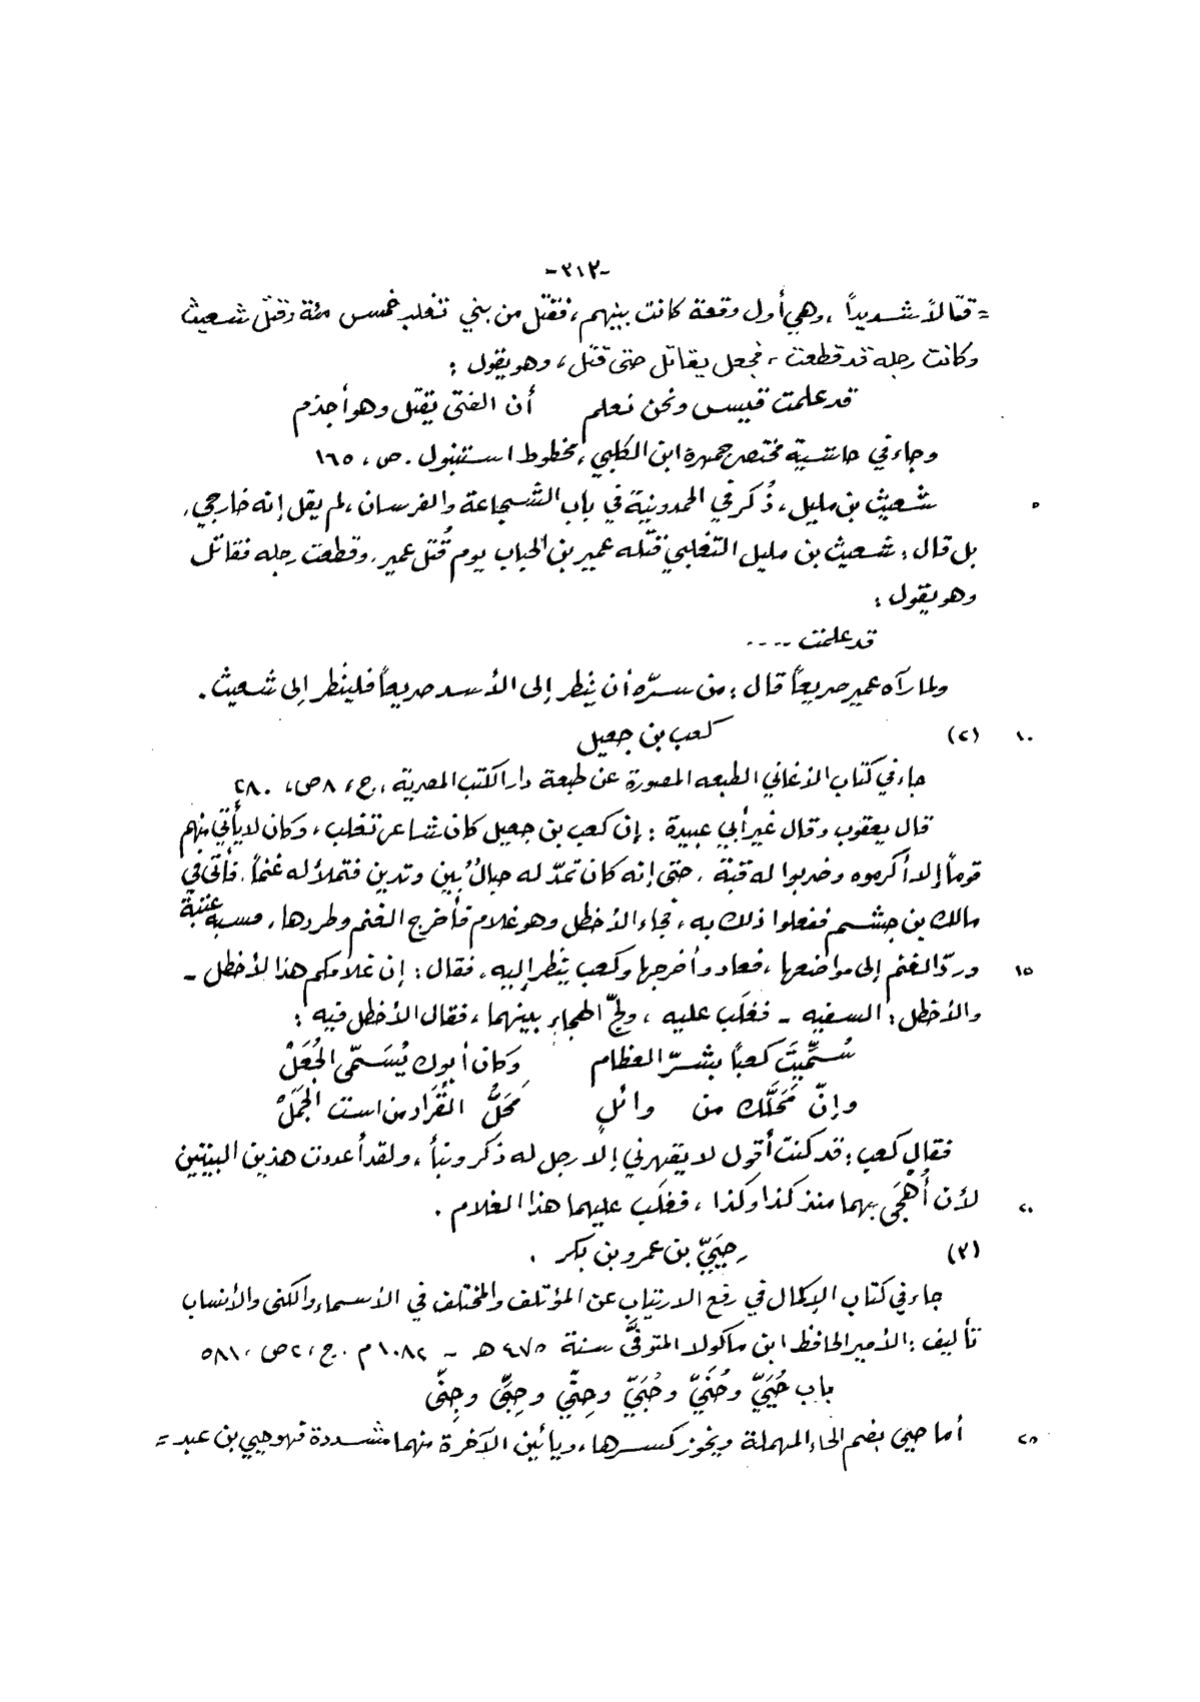 -٣١٢-
= قتالاً شديداً ، وهي أول وقعة كانت بينهم ، فقتل من بني تغلب خمس مئة وقتل شعيث
وكانت رجله قد قطعت ، فجعل يقاتل حتى قتل ، وهو يقول :
قد علمت قيس ونحن نعلم أن الفتى يقتل وهو أجذم
وجاء في حاشية مختصر جمهرة ابن الكلبي ، مخطوط استنبول . ص ، ١٦٥
٥ شعيث بن مليل ، ذُكر في الحمدونية في باب الشجاعة والفرسان ، لم يقل إنه خارجي ،
بل قال : شعيث بن مليل التغلبي قتله عمير بن الحباب يوم قُتل عمير ، وقطعت رجله فقاتل
وهو يقول :
قد علمت ....
ولما رآه عمير صريعاً قال : من سرّه أن ينظر إلى الأسد صريعاً فلينظر إلى شعيث .
١٠ (٢) كعب بن جعيل
جاء في كتاب الأغاني الطبعه المصورة عن طبعة دار الكتب المصرية ، ج ، ٨ ص ، ٢٨٠
قال يعقوب وقال غير أبي عبيدة : إن كعب بن جعيل كان شاعر تغلب ، وكان لا يأتي منهم
قوماً إلا أكرموه وضربوا له قبّة ، حتى إنه كان تمدّ له حبالٌ بين وتدين فتملأ له غنماً . فأتى في
مالك بن جشم ففعلوا ذلك به ، فجاء الأخطل وهو غلام فأخرج الغنم وطردها ، فسبه عتبة
١٥ وردّ الغنم إلى مواضعها ، فعاد وأخرجها وكعب ينظر إليه ، فقال : إن غلامكم هذا لأخطل -
والأخطل : السفيه - فغلب عليه ، ولجّ الهجاء بينهما ، فقال الأخطل فيه :
سُمِّيتَ كعباً بشرّ العظام وكان أبوك يُسَمّى الجُعَلْ
وإنّ مَحَلَّك من وائلٍ مَحَلُّ القُرَاد من است الجَمَلْ
فقال كعب : قد كنت أقول لا يقهرني إلا رجل له ذكر ونبأ ، ولقد أعددت هذين البيتين
٢٠ لأن أُهْجَى بهما منذ كذا وكذا ، فغلب عليهما هذا الغلام .
(٣) حِيَيّ بن عمرو بن بكر .
جاء في كتاب الإكمال في رفع الارتياب عن المؤتلف والمختلف في الأسماء والكنى والأنساب
تأليف : الأمير الحافظ ابن ماكولا المتوفَّى سنة ٤٧٥ هـ - ١٠٨٢ م . ج ، ٢ ص ، ٥٨١
باب حُيَيّ وحُنَيّ وحُبَيّ وحِنّي وحِبّى وحِنّى
٢٥ أما حيي بضم الحاء المهملة ويجوز كسرها ، وبيائين الآخرة منهما مشددة فهو حيي بن عبد =